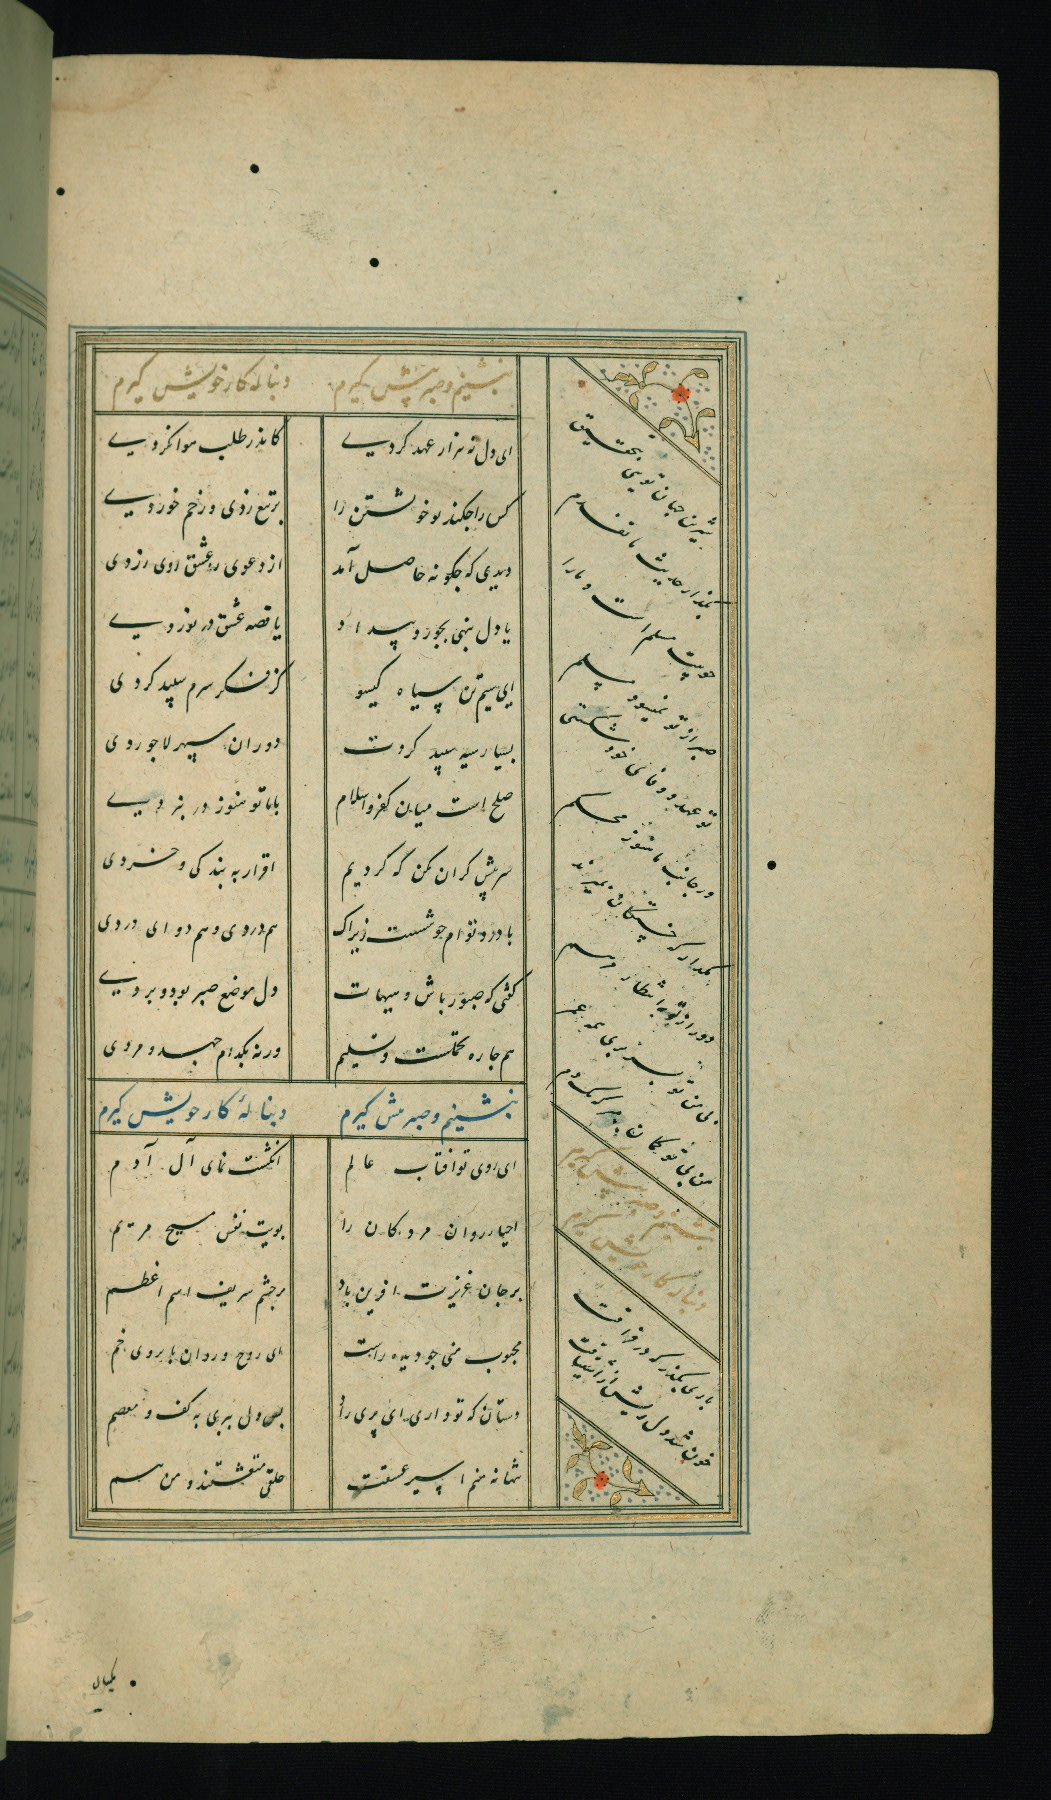 بنشینم و صبر پیش گیرم دنباله کار خویش گیرم
ای دل نه هزار عهد کردی کاندر طلب هوا نکردی
کس را چکند تو خویشتن را بر تیغ زدی و زخم خوردی
دیدی که چگونه حاصل آمد از دعوی عشق روی زردی
یا دل بنهی بجور و بیداد یا قصه عشق در نوردی
ای سیم تن سیاه گیسو کز فکر سرم سپید کردی
بسیار سیه سپید کردت دوران سپهر لاجوردی
صلح است میان کفر و اسلام با ما تو هنوز در نبردی
سر پیش گران مکن که کردیم اقرار به بندگی و خردی
با درد توام خوشست زیراک هم دردی و هم دوای دردی
گفتی که صبور باش هیهات دل موضع صبر بود و بردی
هم چاره تحملست و تسلیم ورنه بکدام جهد و مردی
بنشینم و صبر پیش گیرم دنبالهٔ کار خویش گیرم
ای روی تو آفتاب عالم انگشت نمای آل آدم
احیاء روان مردگان را بویت نفس مسیح مریم
بر جان عزیزت آفرین باد بر جسم شریف اسم اعظم
محبوب منی چو دیده راست ای روح و روان بابروی خم
دستان که تو داری ای پری زاد بس دل ببری به کف و معصم
تنها نه منم اسیر عشقت خلقی متعشقند و من هم
شیرین جهان تویی بتحقیق
بگذار حدیث ما تقدم
خوبیت مسلم است و ما را
صبر از تو نمیشود مسلم
تو عهد و وفای خود شکستی
وز جانب ما هنوز محکم
مگذار که خستگان بمیرند
دور از تو به انتظار مرهم
بی من تو بسر بری همه عمر
من بی تو گمان مبر که یکدم
بنشینم و صبر پیش گیرم
دنباله کار خویش گیرم
باری بگذر که در فراقت
خون شد دل ریش از اشتیاقت